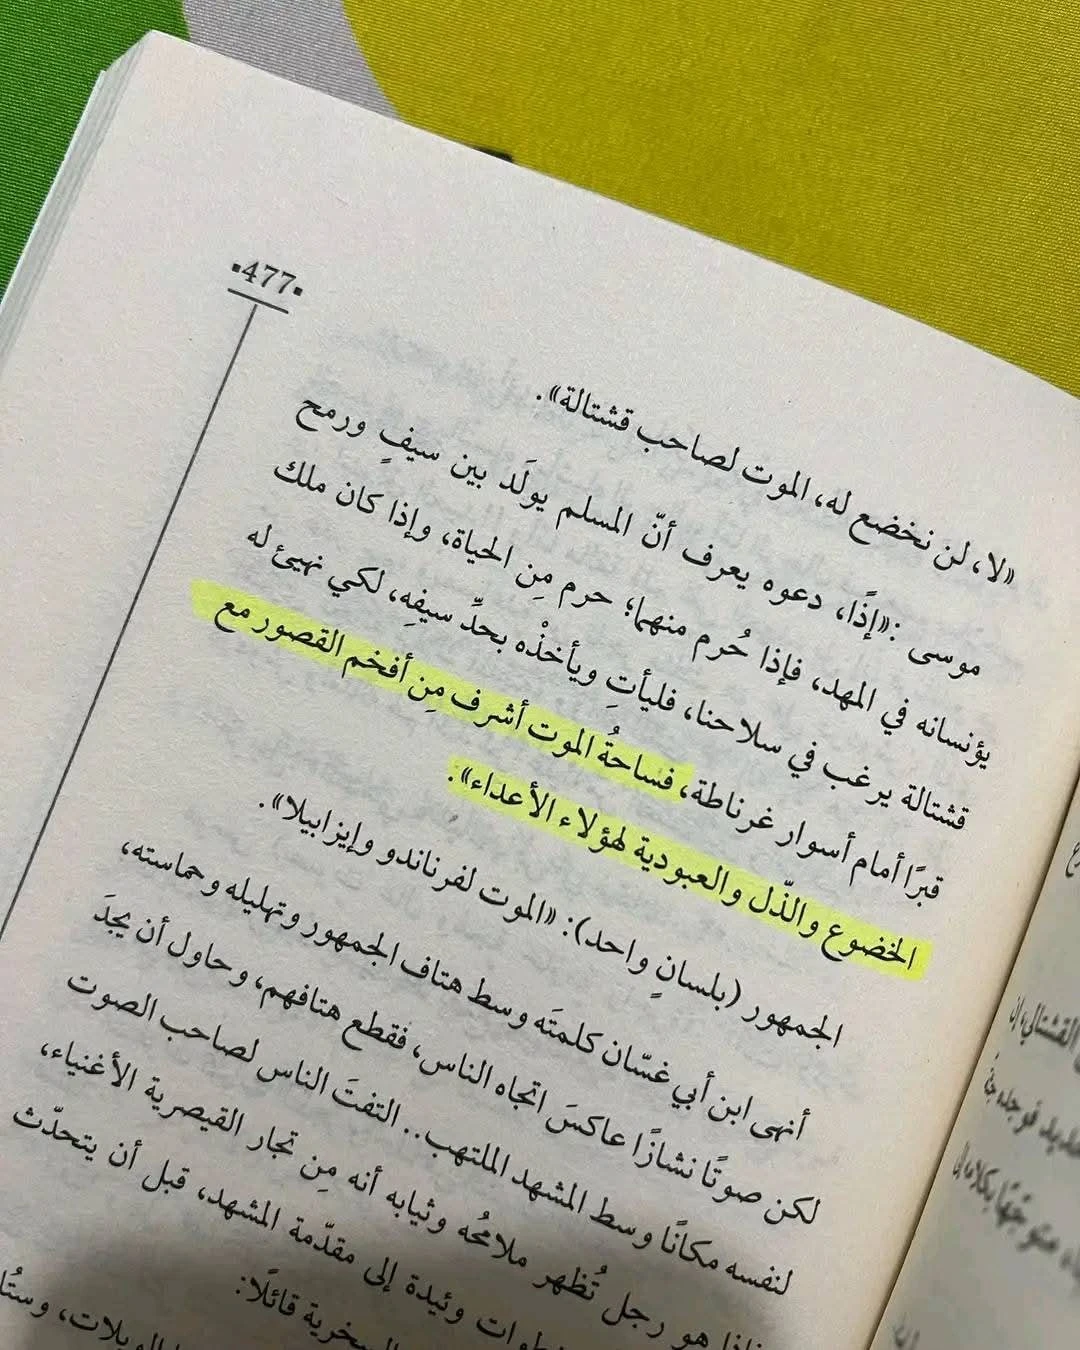 ▪477▪
«لا، لن نخضع له، الموت لصاحب قشتالة».
موسى: «إذًا، دعوه يعرف أنّ المسلم يولَد بين سيفٍ ورمح
يؤنسانه في المهد، فإذا حُرم منهما؛ حرم مِن الحياة، وإذا كان ملك
قشتالة يرغب في سلاحنا، فليأتِ ويأخذْه بحدِّ سيفِه، لكي نهيئ له
قبرًا أمام أسوار غرناطة، فساحةُ الموت أشرف مِن أفخم القصور مع
الخضوع والذّل والعبودية لهؤلاء الأعداء».
الجمهور (بلسانٍ واحد): «الموت لفرناندو وإيزابيلا».
أنهى ابن أبي غسّان كلمتَه وسط هتاف الجمهور وتهليله وحماسته،
لكن صوتًا نشازًا عاكسَ اتجاه الناس، فقطع هتافهم، وحاول أن يجدَ
لنفسه مكانًا وسط المشهد الملتهب.. التفتَ الناس لصاحب الصوت
هو رجل تُظهر ملامحُه وثيابه أنه مِن تجار القيصرية الأغنياء،
وئيدة إلى مقدّمة المشهد، قبل أن يتحدّث
قائلًا:
القشتالي، إن
فوجده